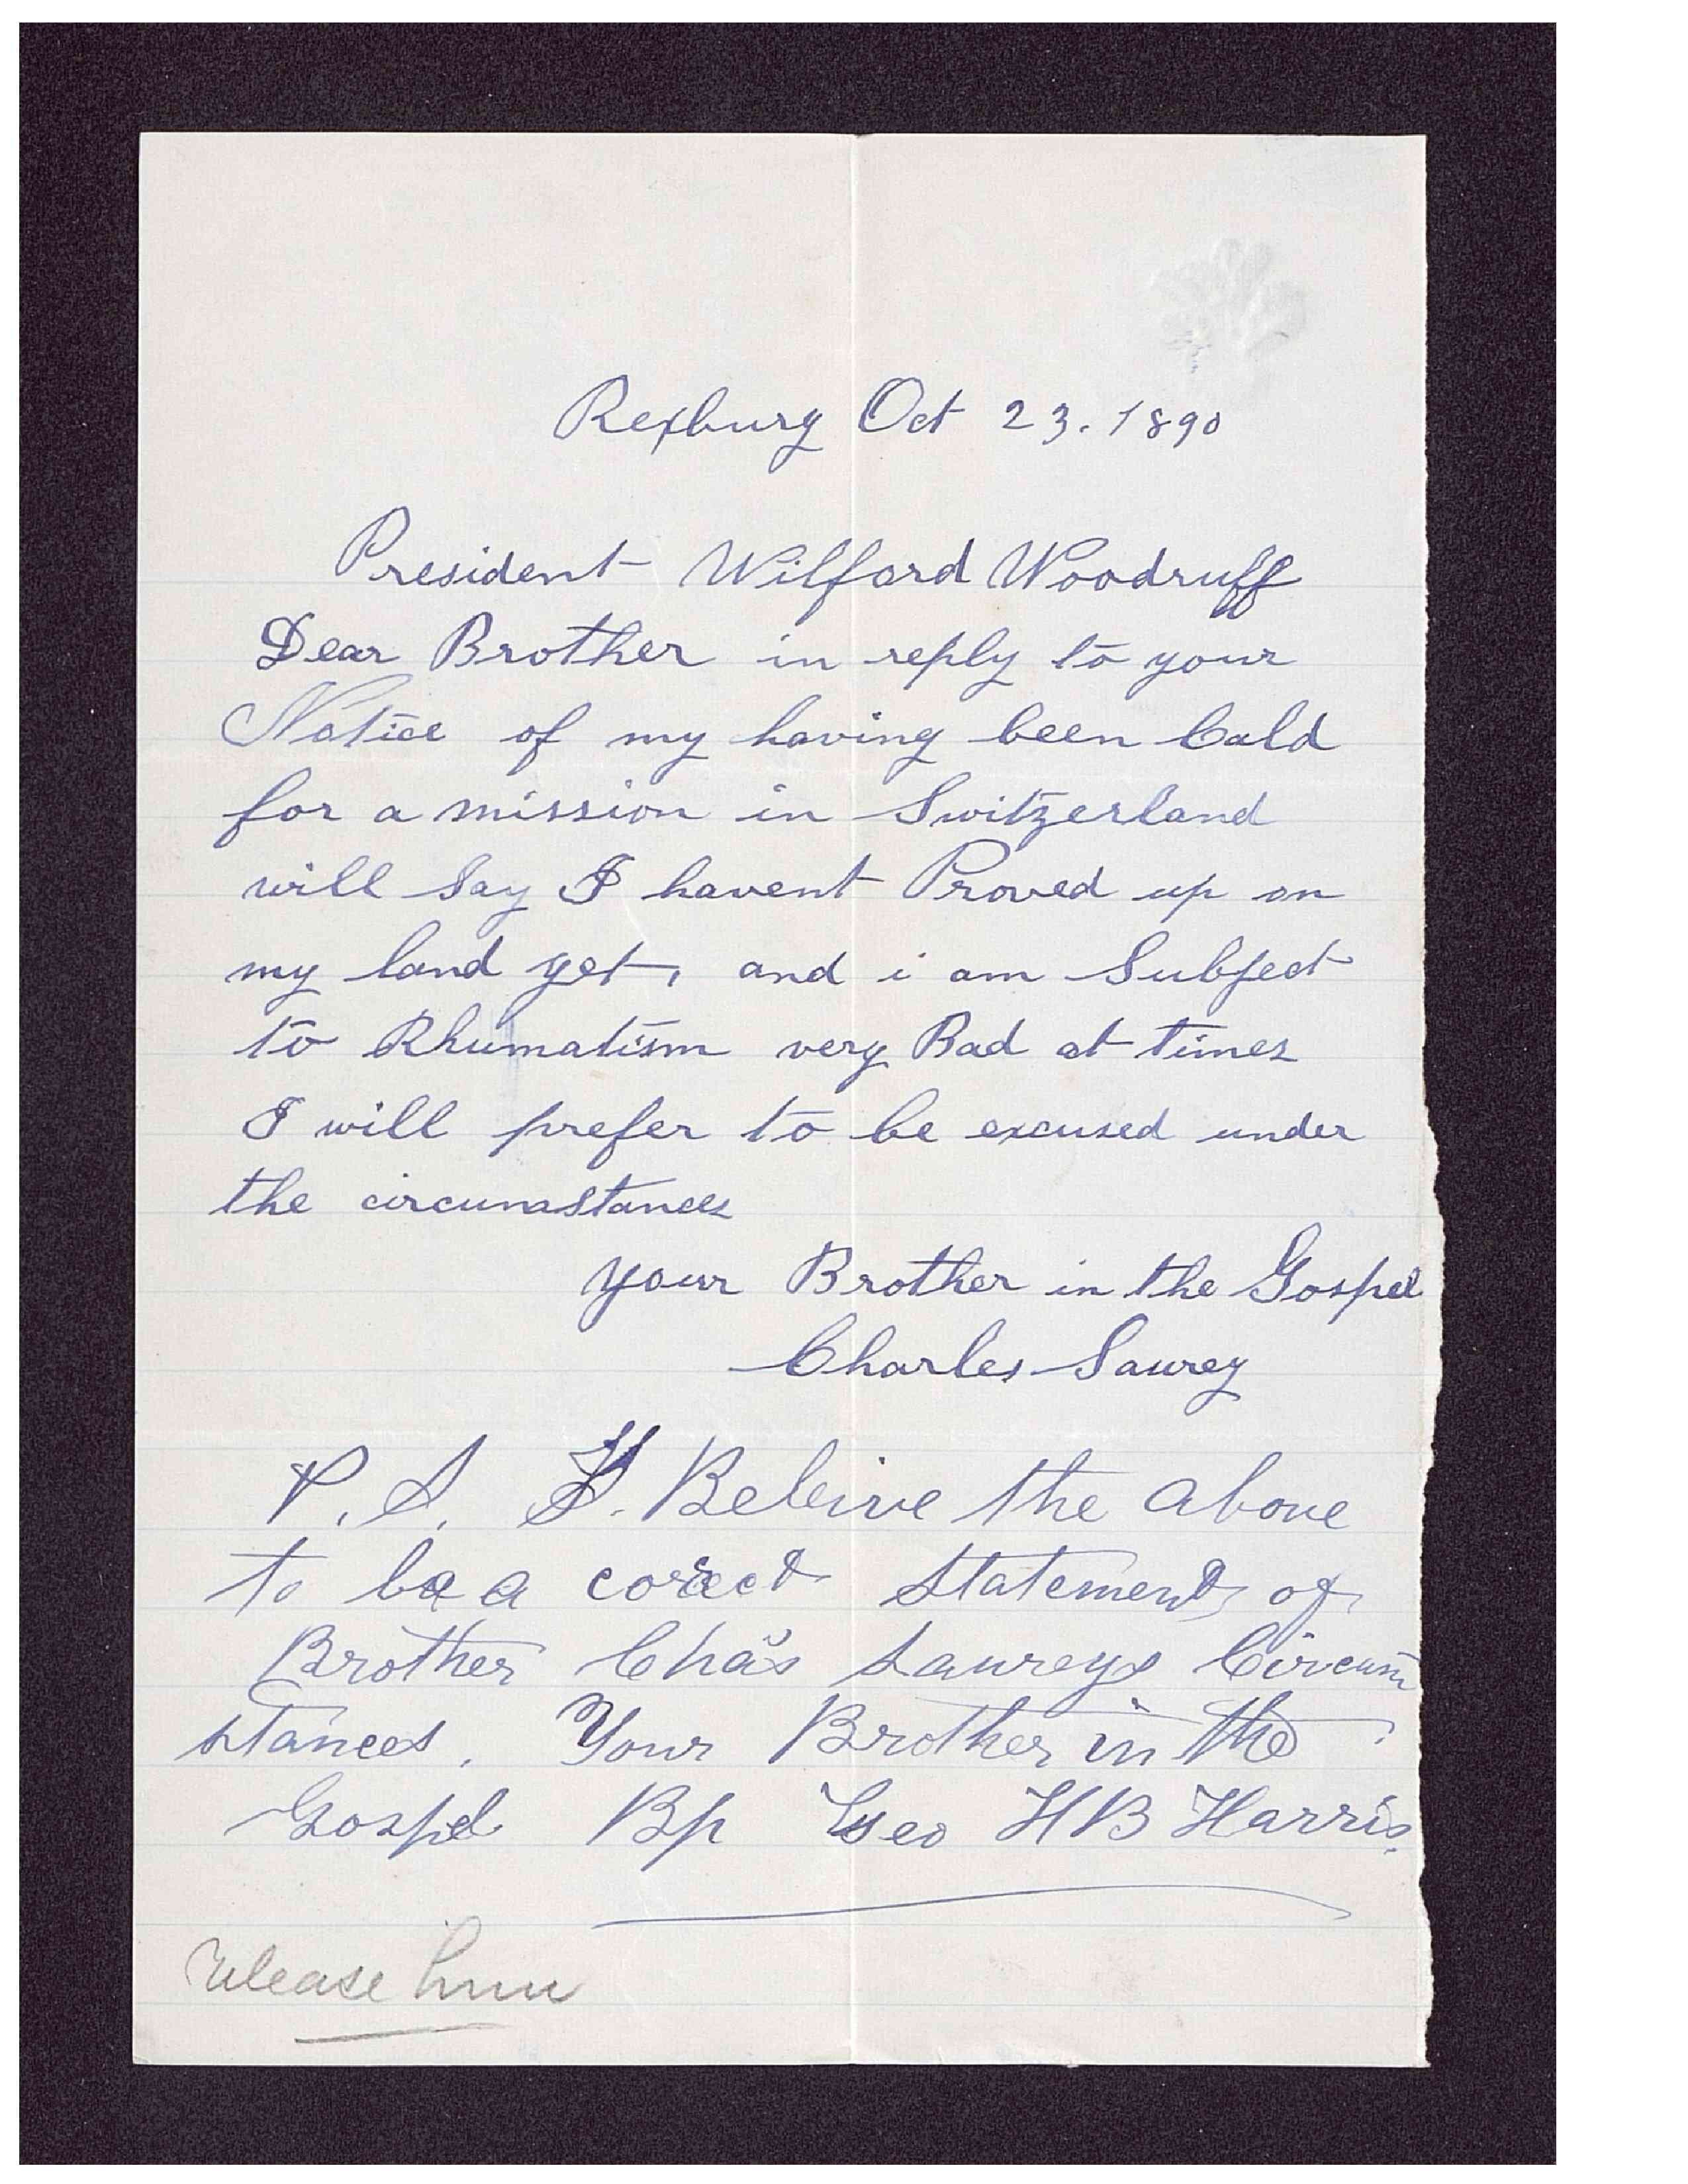 Rexburg Oct 23. 1890
President Wilford Woodruff
Dear Brother in reply to your
Notice of my having been Cald
for a mission in Switzerland
will say I havent Proved up on
my land yet, and i am Subject
to Rhumatism very Bad at times
I will prefer to be excused under
the circumstances
your Brother in the Gospel
Charles Saurey
P.S. I. Beleive the above
to be a corect Statement of
Brother Chas Saureys Circum
stances. Your Brother in the
Gospel Bp Geo H B Harris.
release him